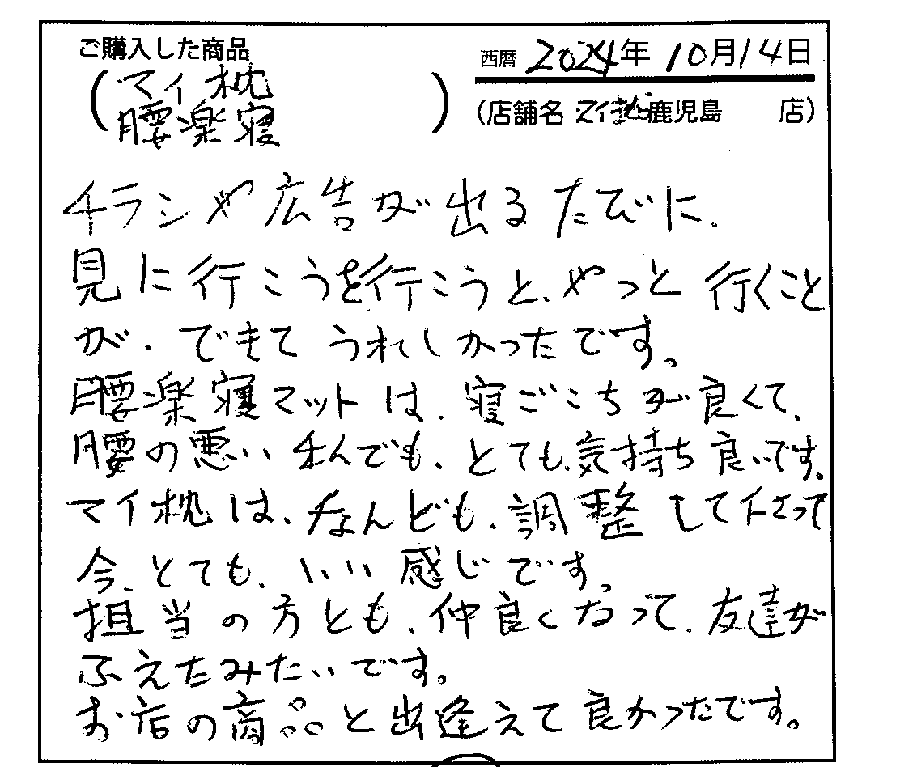 ご購入した商品
(マイ枕
腰楽寝)
西暦 2024年 10月14日
(店舗名 マイまくら鹿児島 店)
チラシや広告が出るたびに、
見に行こうを行こうと、やっと行くこと
が、できてうれしかったです。
腰楽寝マットは、寝ごこちが良くて、
腰の悪い私でも、とても気持ち良いです。
マイ枕は、なんども、調整して下さって
今、とても、いい感じです。
担当の方とも、仲良くなって、友達が
ふえたみたいです。
お店の商品と出逢えて良かったです。